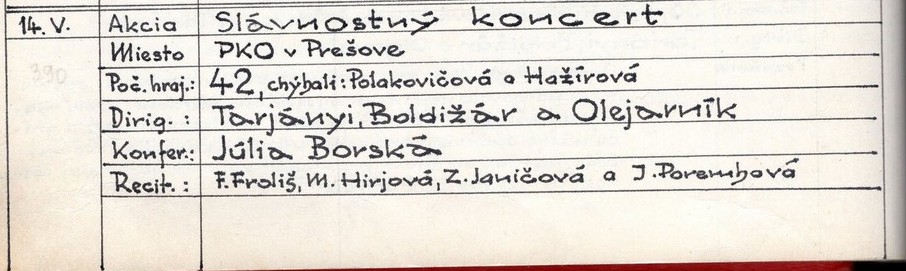 14. V. Akcia Slávnostný koncert
Miesto PKO v Prešove
Poč. hraj.: 42, chýbali: Polakovičová a Hažírová
Dirig.: Tarjányi, Boldižár a Olejarník
Konfer.: Júlia Borská
Recit.: F. Froliš, M. Hirjová, Z. Janičová a J. Porembová
390